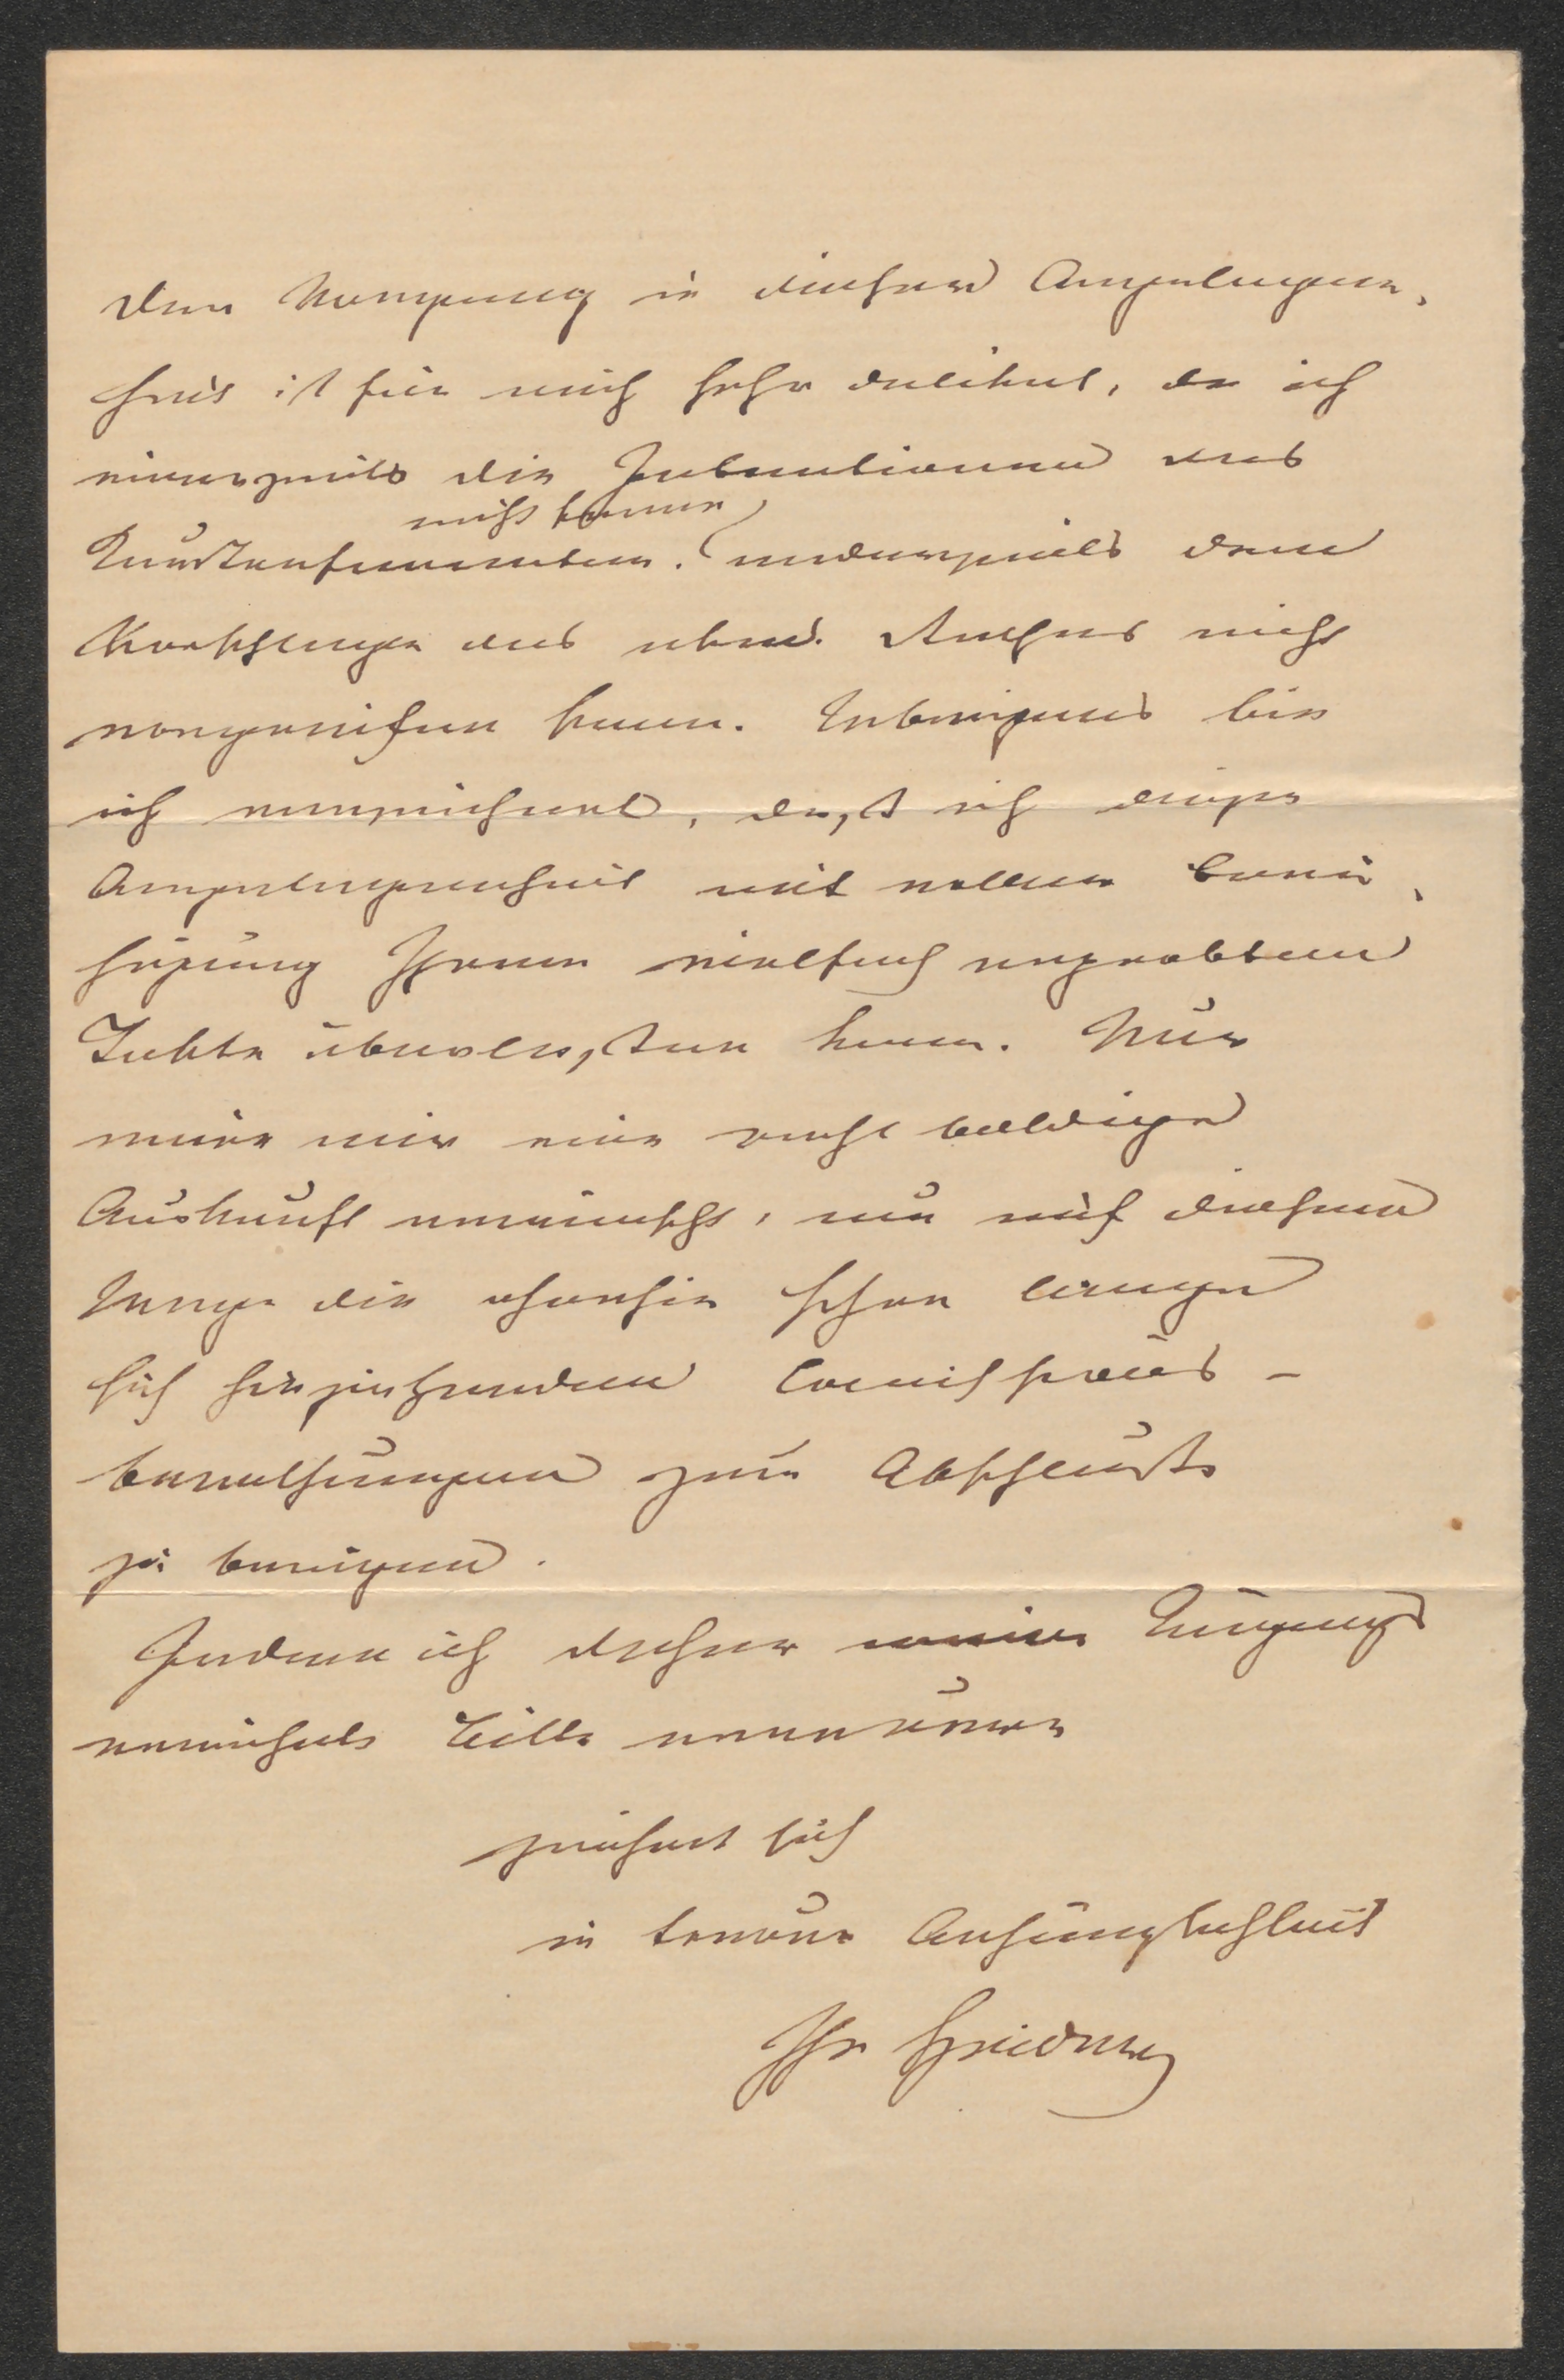 Der Vorgang in dieser Angelegen-
heit ist für mich sehr delikat, da ich
einerseits die Intentionen des
nicht kenne
andererseits dem
Vorschlage des nicht
vorgreifen kann. Uebrigens bin
ich, dasz ich diese
Angelegenheit mit voller Beru-
higung Ihrem vielfach erprobten
Takte überlaszen kann. Nur
wäre mir eine recht baldige
Auskunft erwünscht, um auf diesem
Wege die ohnehin schon lange
sich hinziehenden Comissions-
berathungen zum Abschlusze
zu bringen.
Indem ich daher Eingangs
erwähnte Bitte erneuere
zeichnet sich
in treuer Anhänglichkeit
Ihr